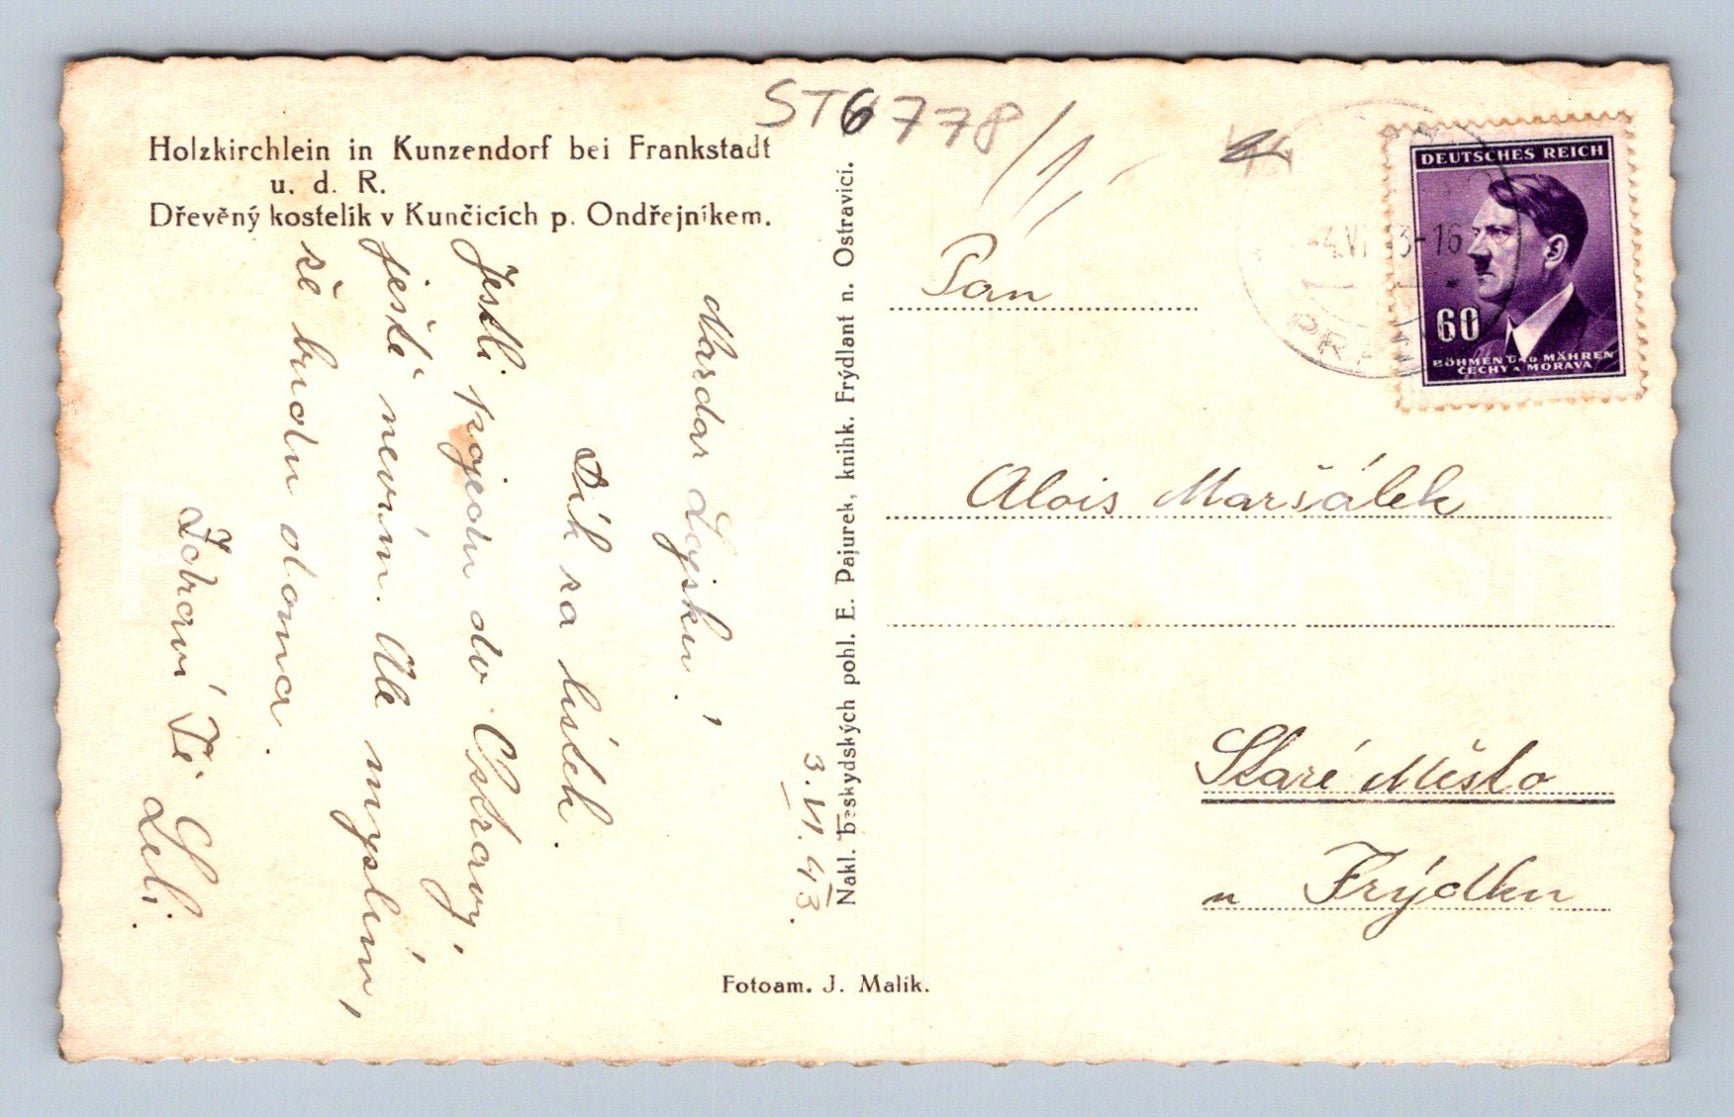 ST6778/1,-
Holzkirchlein in Kunzendorf bei Frankstadt
u. d. R.
Dřevěný kostelík v Kunčicích p. Ondřejníkem.
3. VI. 43.
Nazdar Lojzku!
Dík za lístek.
Jestli pojedu do Ostravy,
ještě nevím. Ale myslím,
že budu doma.
Zdraví Tě
Nakl. beskydských pohl. E. Pajurek, knihk. Frýdlant n. Ostravicí.
Fotoam. J. Malík.
DEUTSCHES REICH
60
BÖHMEN UND MÄHREN
ČECHY A MORAVA
-4.VI 43-16
Pan
Alois Maršálek
Staré Město
u Frýdku